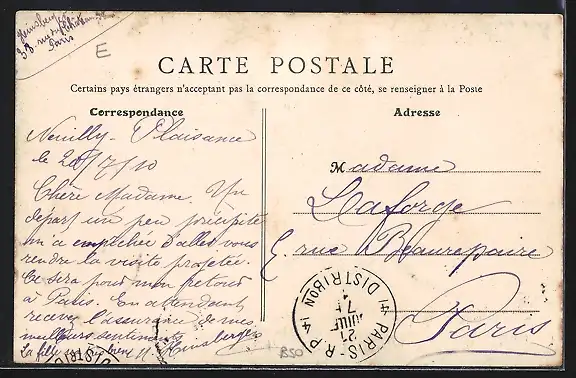 Heinsberger
38 rue du Château
Paris
E
CARTE POSTALE
Certains pays étrangers n'acceptent pas la correspondance de ce côté, se renseigner à la Poste
Correspondance
Adresse
Neuilly-Plaisance
le 20/7/10
Chère Madame. Un
départ un peu précipité
m'a empêchée d'aller vous
rendre la visite projetée.
Ce sera pour mon retour
à Paris. En attendant
recevez l'assurance de mes
meilleurs sentiments
La fille va très bien H. Heinsberger
Madame
Laforge
rue Beaurepaire
Paris
PARIS - R.P.
DISTRIBON
21
JUIL
850